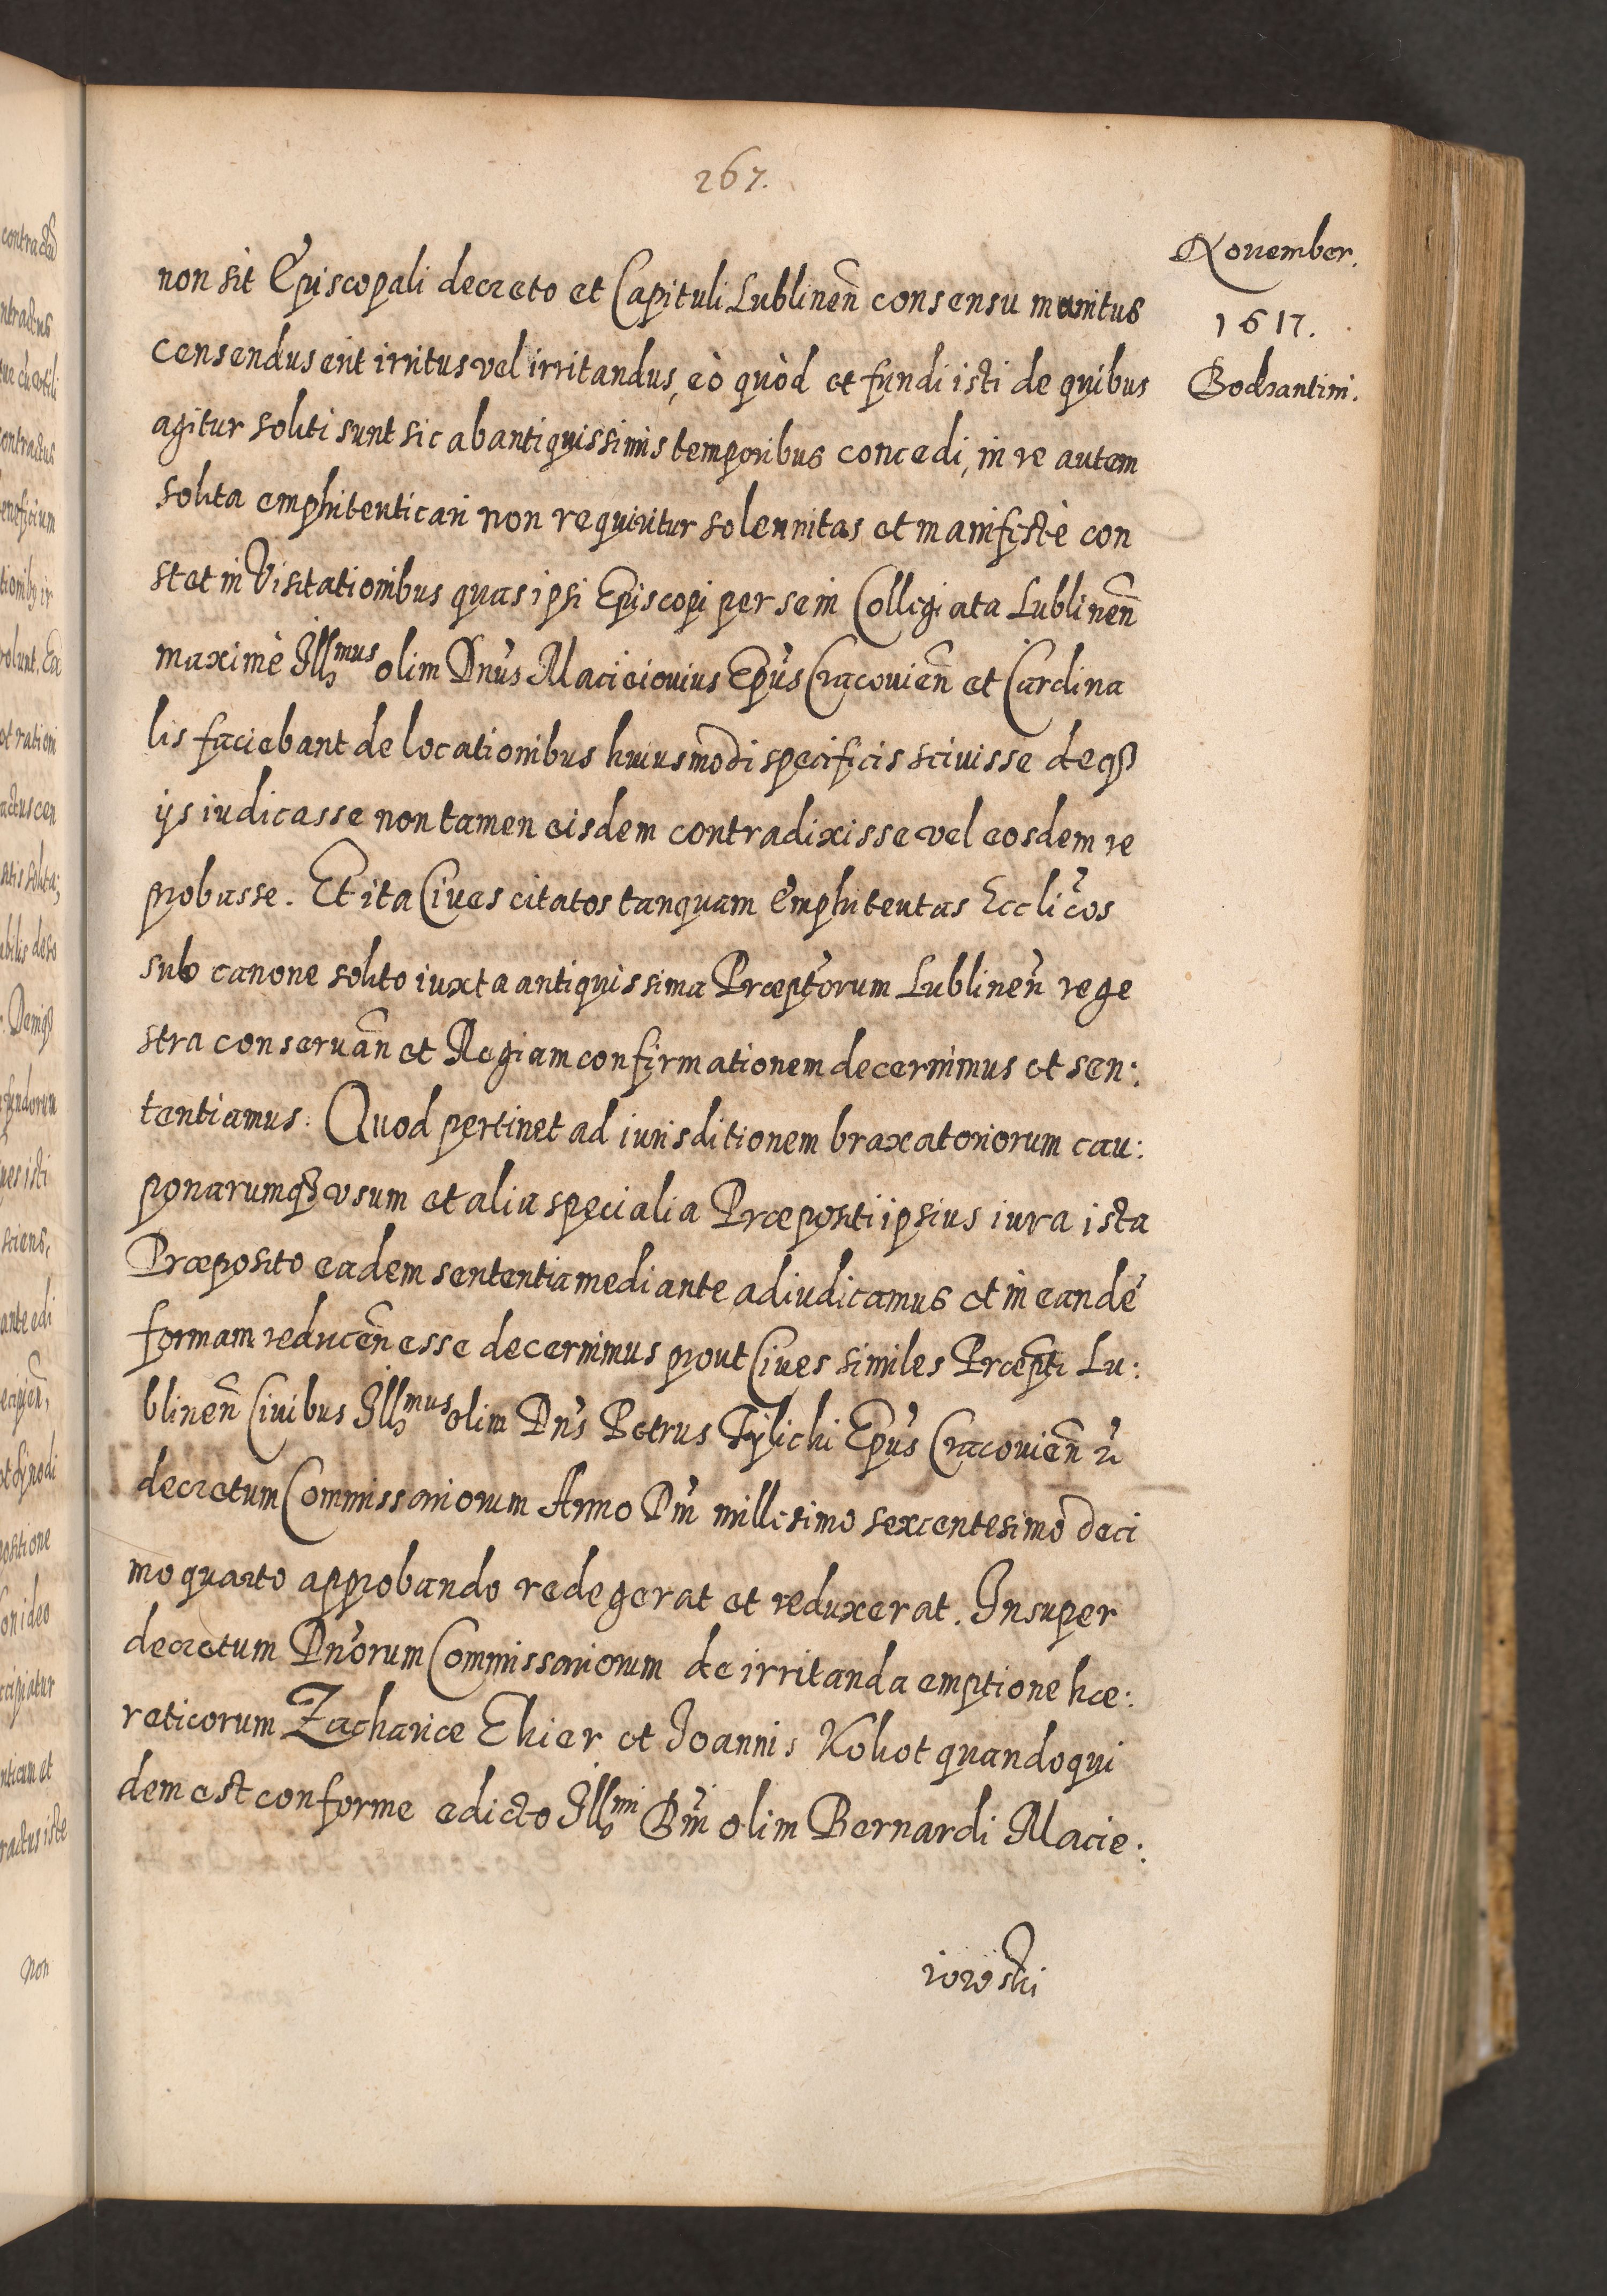 267.
November.
1617.
Bodzantini.
non sit Episcopali decreto et Capituli Lublinen̄ consensu munitus
censendus erit irritus vel irritandus, eò quòd et fundi isti de quibus
agitur soliti sunt sic ab antiquissimis temporibus concedi, in re autem
solita emphiteuticari non requiritur solennitas et manifestè con
stet in Visitationibus quas ipsi Episcopi per se in Collegiata Lublinen̄
maximè Illmus olim Dnus Macieiouius Epus Cracouien̄ et Cardina
lis faciebant de locationibus huiusmodi specificis sciuisse deq3
ijs iudicasse non tamen eisdem contradixisse vel eosdem re
probasse. Et ita Ciues citatos tanquam Emphiteutas Eccli͠cos
sub canone solito iuxta antiquissima Præptorum Lublinen̄ rege
stra conseruan̄ et Regiam confirmationem decernimus et sen:
tentiamus. Quod pertinet ad iurisditionem braxatoriorum cau:
ponarumq3 vsum et alia specialia Præpositi ipsius iura ista
Præposito eadem sententia mediante adiudicamus et in eandē
formam reducen̄ esse decernimus prout Ciues similes Præpti Lu:
blinen̄ Ciuibus Illmus olim Dns Petrus Tylicki Epus Cracouien̄
decretum Commissariorum Anno Dni millesimo sexcentesimo deci
mo quarto approbando redegerat et reduxerat. Insuper
decretum Dnorum Commissariorum de irritanda emptione hæ:
reticorum Zachariæ Ekier et Joannis Kokot quandoqui
dem est conforme edicto Illmi Dni olim Bernardi Macie:
iowski